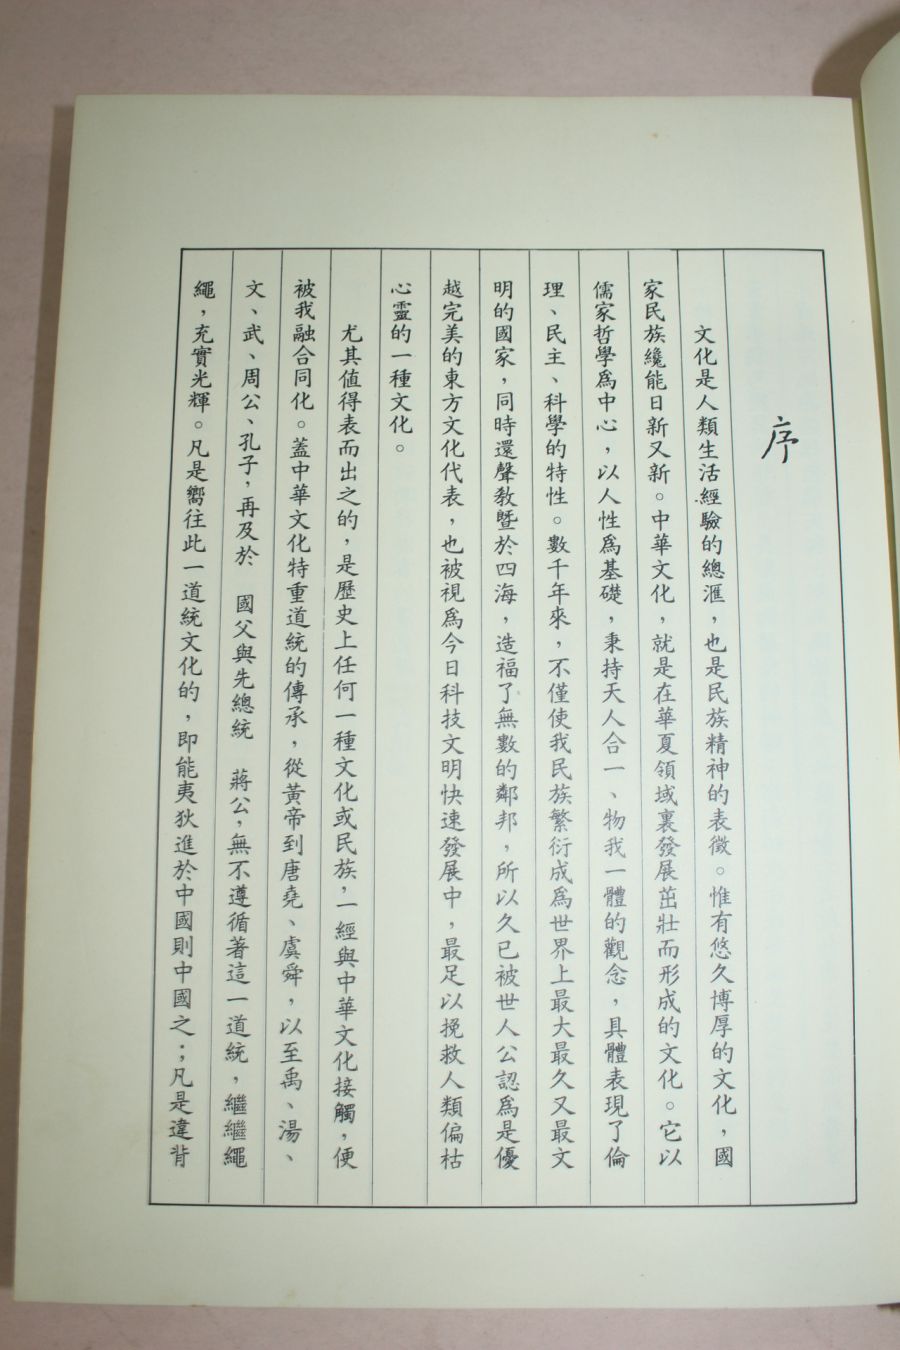 序
文化是人類生活經驗的總滙，也是民族精神的表徵。惟有悠久博厚的文化，國
家民族纔能日新又新。中華文化，就是在華夏領域裏發展茁壯而形成的文化。它以
儒家哲學爲中心，以人性爲基礎，秉持天人合一、物我一體的觀念，具體表現了倫
理、民主、科學的特性。數千年來，不僅使我民族繁衍成爲世界上最大最久又最文
明的國家，同時還聲教暨於四海，造福了無數的鄰邦，所以久已被世人公認爲是優
越完美的東方文化代表，也被視爲今日科技文明快速發展中，最足以挽救人類偏枯
心靈的一種文化。
尤其值得表而出之的，是歷史上任何一種文化或民族，一經與中華文化接觸，便
被我融合同化。蓋中華文化特重道統的傳承，從黃帝到唐堯、虞舜，以至禹、湯、
文、武、周公、孔子，再及於　國父與先總統　蔣公，無不遵循著這一道統，繼繼繩
繩，充實光輝。凡是嚮往此一道統文化的，即能夷狄進於中國則中國之；凡是違背